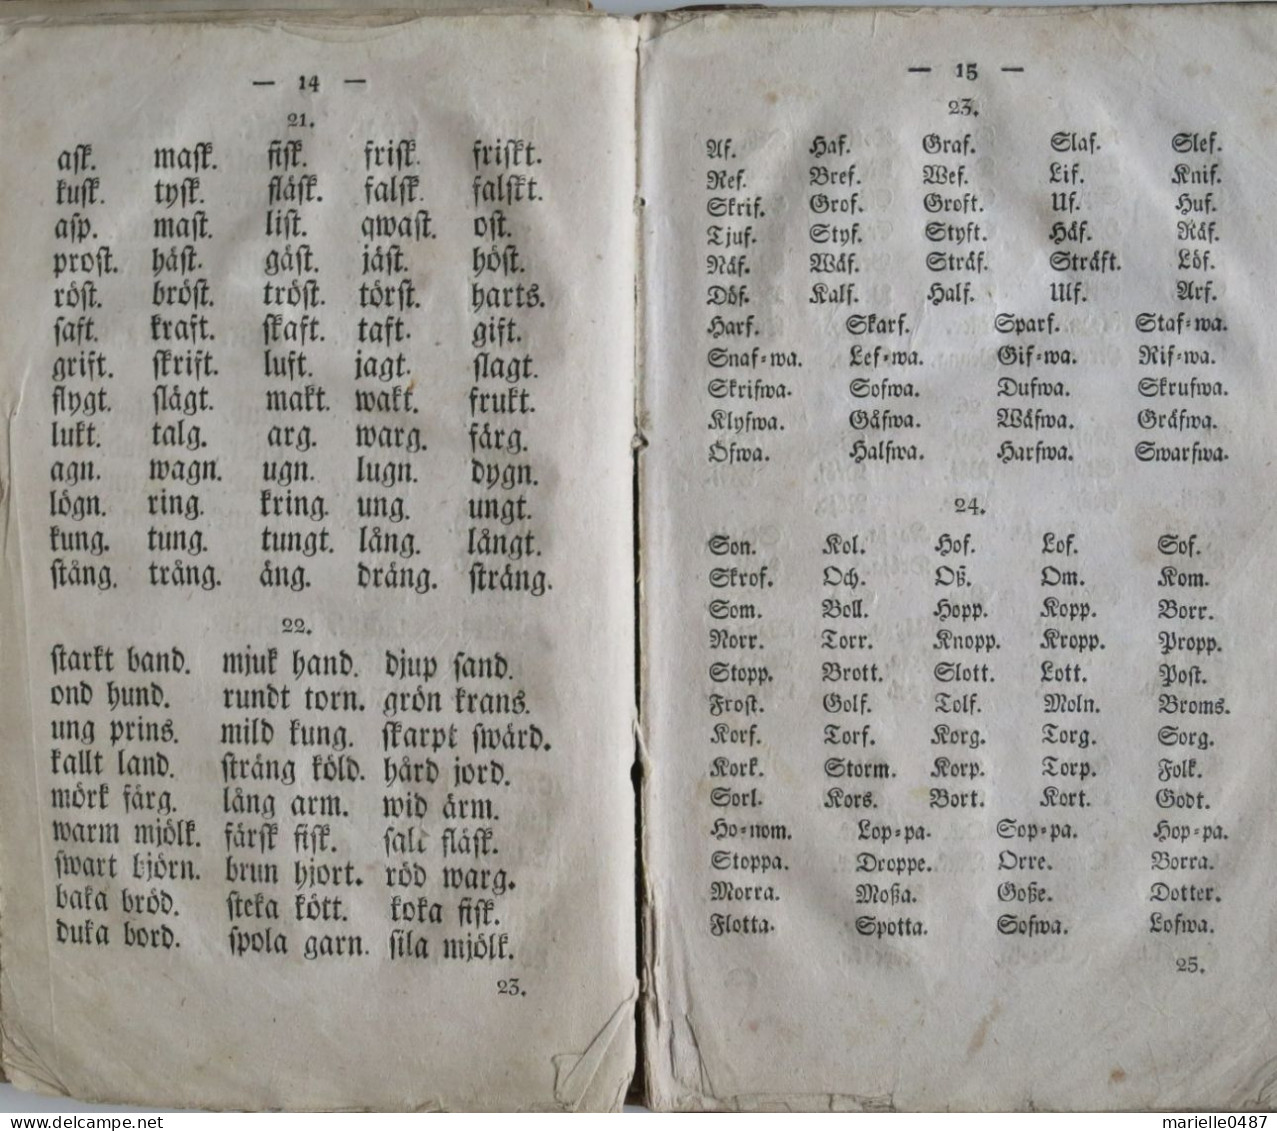 — 14 —
21.
ask. mask. fisk. frisk. friskt.
kusk. tysk. fläsk. falsk. falskt.
asp. mast. list. qwast. ost.
prost. häst. gäst. jäst. höst.
röst. bröst. tröst. törst. harts.
saft. kraft. skaft. taft. gift.
grift. skrift. luft. jagt. slagt.
flygt. slägt. makt. wakt. frukt.
lukt. talg. arg. warg. färg.
agn. wagn. ugn. lugn. dygn.
lögn. ring. kring. ung. ungt.
kung. tung. tungt. lång. långt.
stång. trång. äng. dräng. sträng.
22.
starkt band. mjuk hand. djup sand.
ond hund. rundt torn. grön krans.
ung prins. mild kung. skarpt swärd.
kallt land. sträng köld. hård jord.
mörk färg. lång arm. wid ärm.
warm mjölk. färsk fisk. salt fläsk.
swart björn. brun hjort. röd warg.
baka bröd. steka kött. koka fisk.
duka bord. spola garn. sila mjölk.
23.
— 15 —
23.
Af. Haf. Graf. Slaf. Slef.
Ref. Bref. Wef. Lif. Knif.
Skrif. Grof. Groft. Uf. Huf.
Tjuf. Styf. Styft. Häf. Räf.
Näf. Wäf. Sträf. Sträft. Löf.
Döf. Kalf. Half. Ulf. Arf.
Harf. Skarf. Sparf. Staf-wa.
Snaf-wa. Lef-wa. Gif-wa. Rif-wa.
Skrifwa. Sofwa. Dufwa. Skrufwa.
Klyfwa. Gåfwa. Wäfwa. Gräfwa.
Öfwa. Halfwa. Harfwa. Swarfwa.
24.
Son. Kol. Hof. Lof. Sof.
Skrof. Och. Oß. Om. Kom.
Som. Boll. Hopp. Kopp. Borr.
Norr. Torr. Knopp. Kropp. Propp.
Stopp. Brott. Slott. Lott. Post.
Frost. Golf. Tolf. Moln. Broms.
Korf. Torf. Korg. Torg. Sorg.
Kork. Storm. Korp. Torp. Folk.
Sorl. Kors. Bort. Kort. Godt.
Ho-nom. Lop-pa. Sop-pa. Hop-pa.
Stoppa. Droppe. Orre. Borra.
Morra. Moßa. Goße. Dotter.
Flotta. Spotta. Sofwa. Lofwa.
25.
marielle0487